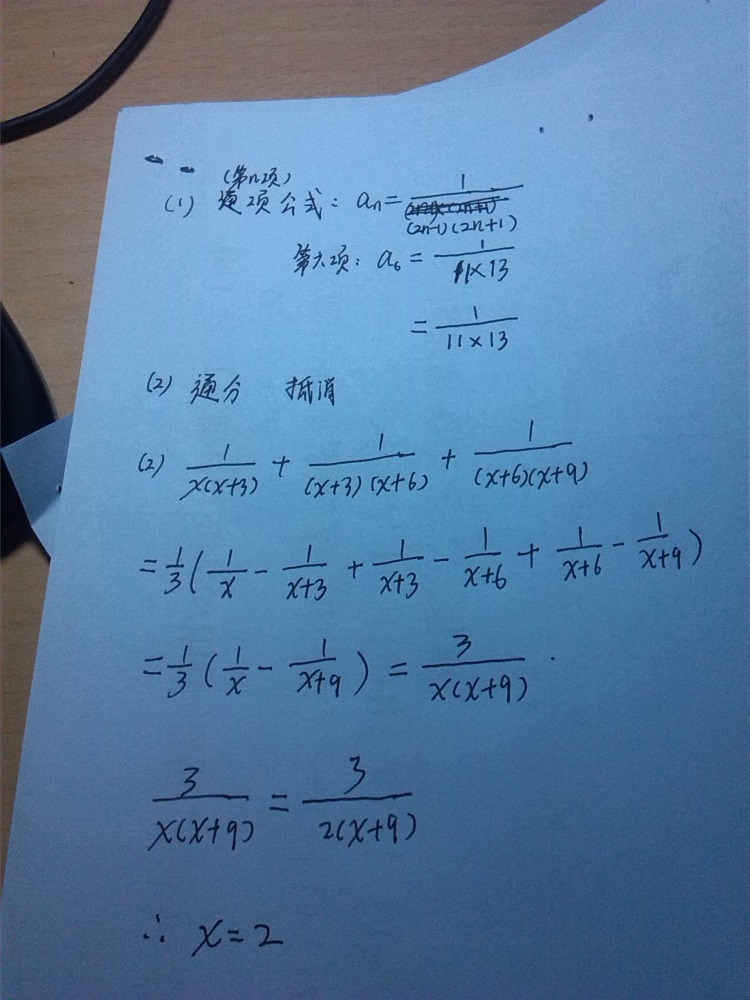 (第n项)
(1) 通项公式: aₙ = 1/((2n-1)(2n+1))
第六项: a₆ = 1/(11×13)
= 1/(11×13)
(2) 通分 抵消
(2) 1/(x(x+3)) + 1/((x+3)(x+6)) + 1/((x+6)(x+9))
= 1/3(1/x - 1/(x+3) + 1/(x+3) - 1/(x+6) + 1/(x+6) - 1/(x+9))
= 1/3(1/x - 1/(x+9)) = 3/(x(x+9)).
3/(x(x+9)) = 3/(2(x+9))
∴ x=2